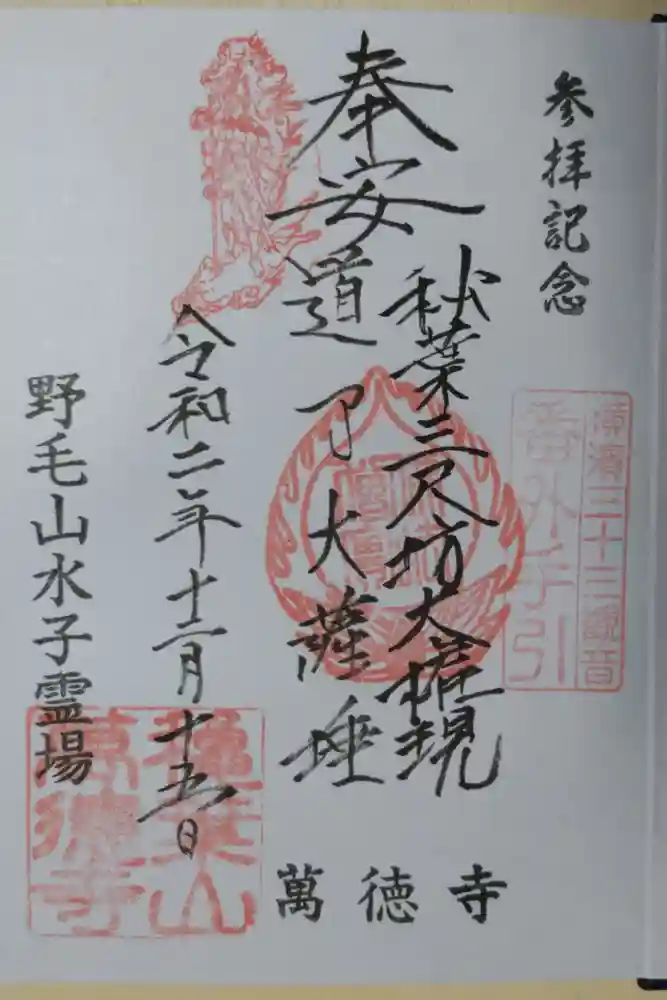 参拝記念
横濱三十三観音
番外手引
奉安
秋葉三尺坊大権現
道了大薩埵
令和二年十二月十五日
野毛山水子霊場
萬徳寺
萬徳寺